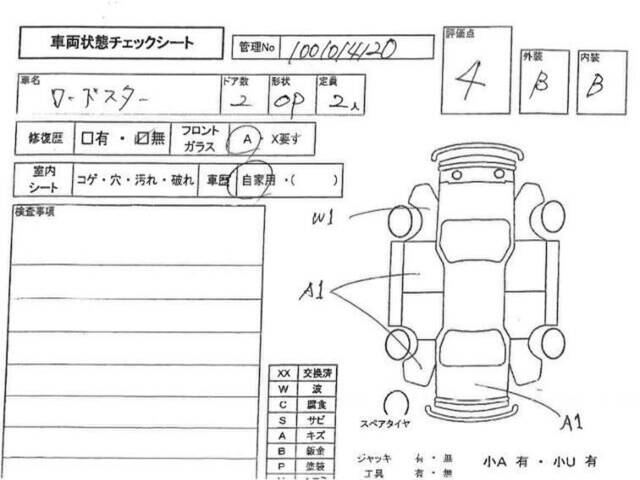 車両状態チェックシート
管理No 1001014120
評価点 4
外装 B
内装 B
車名 ロードスター
ドア数 2
形状 OP
定員 2人
修復歴 □有・☑無 フロントガラス A・X要す
室内シート コゲ・穴・汚れ・破れ 車歴 自家用・( )
検査事項
W1
A1
A1
XX 交換済
W 波
C 腐食
S サビ
A キズ
B 鈑金
P 塗装
スペアタイヤ
ジャッキ 有・無
工具 有・無
小A 有・小U 有